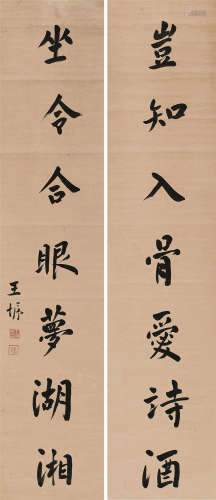 豈知入骨愛詩酒
坐令合眼夢湖湘